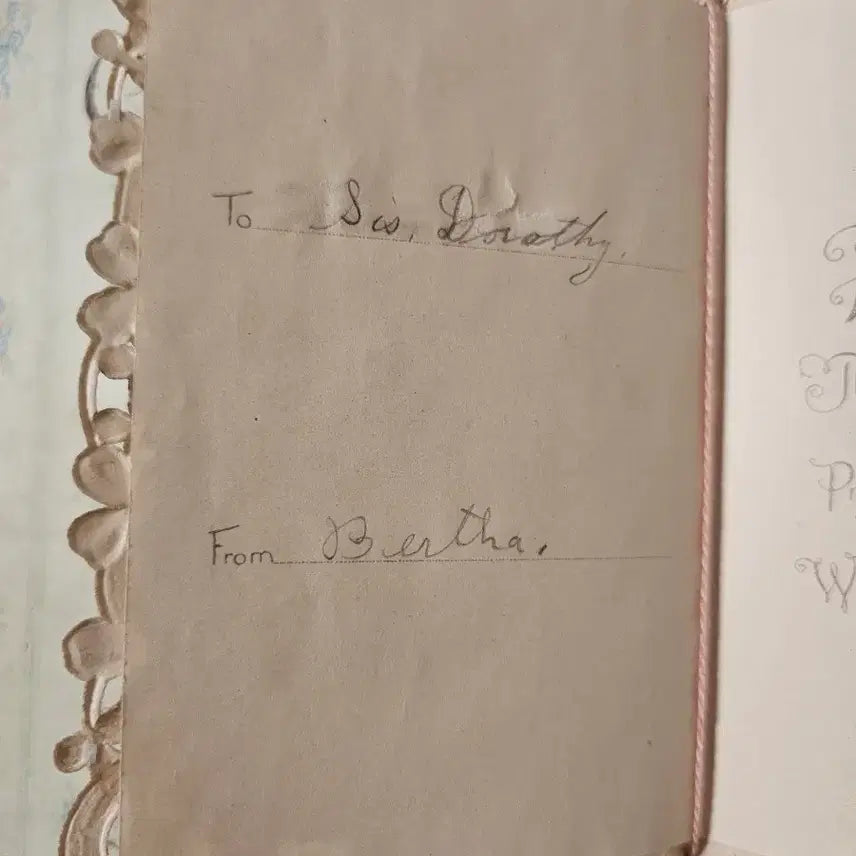 To Sis, Dorothy.
From Bertha.